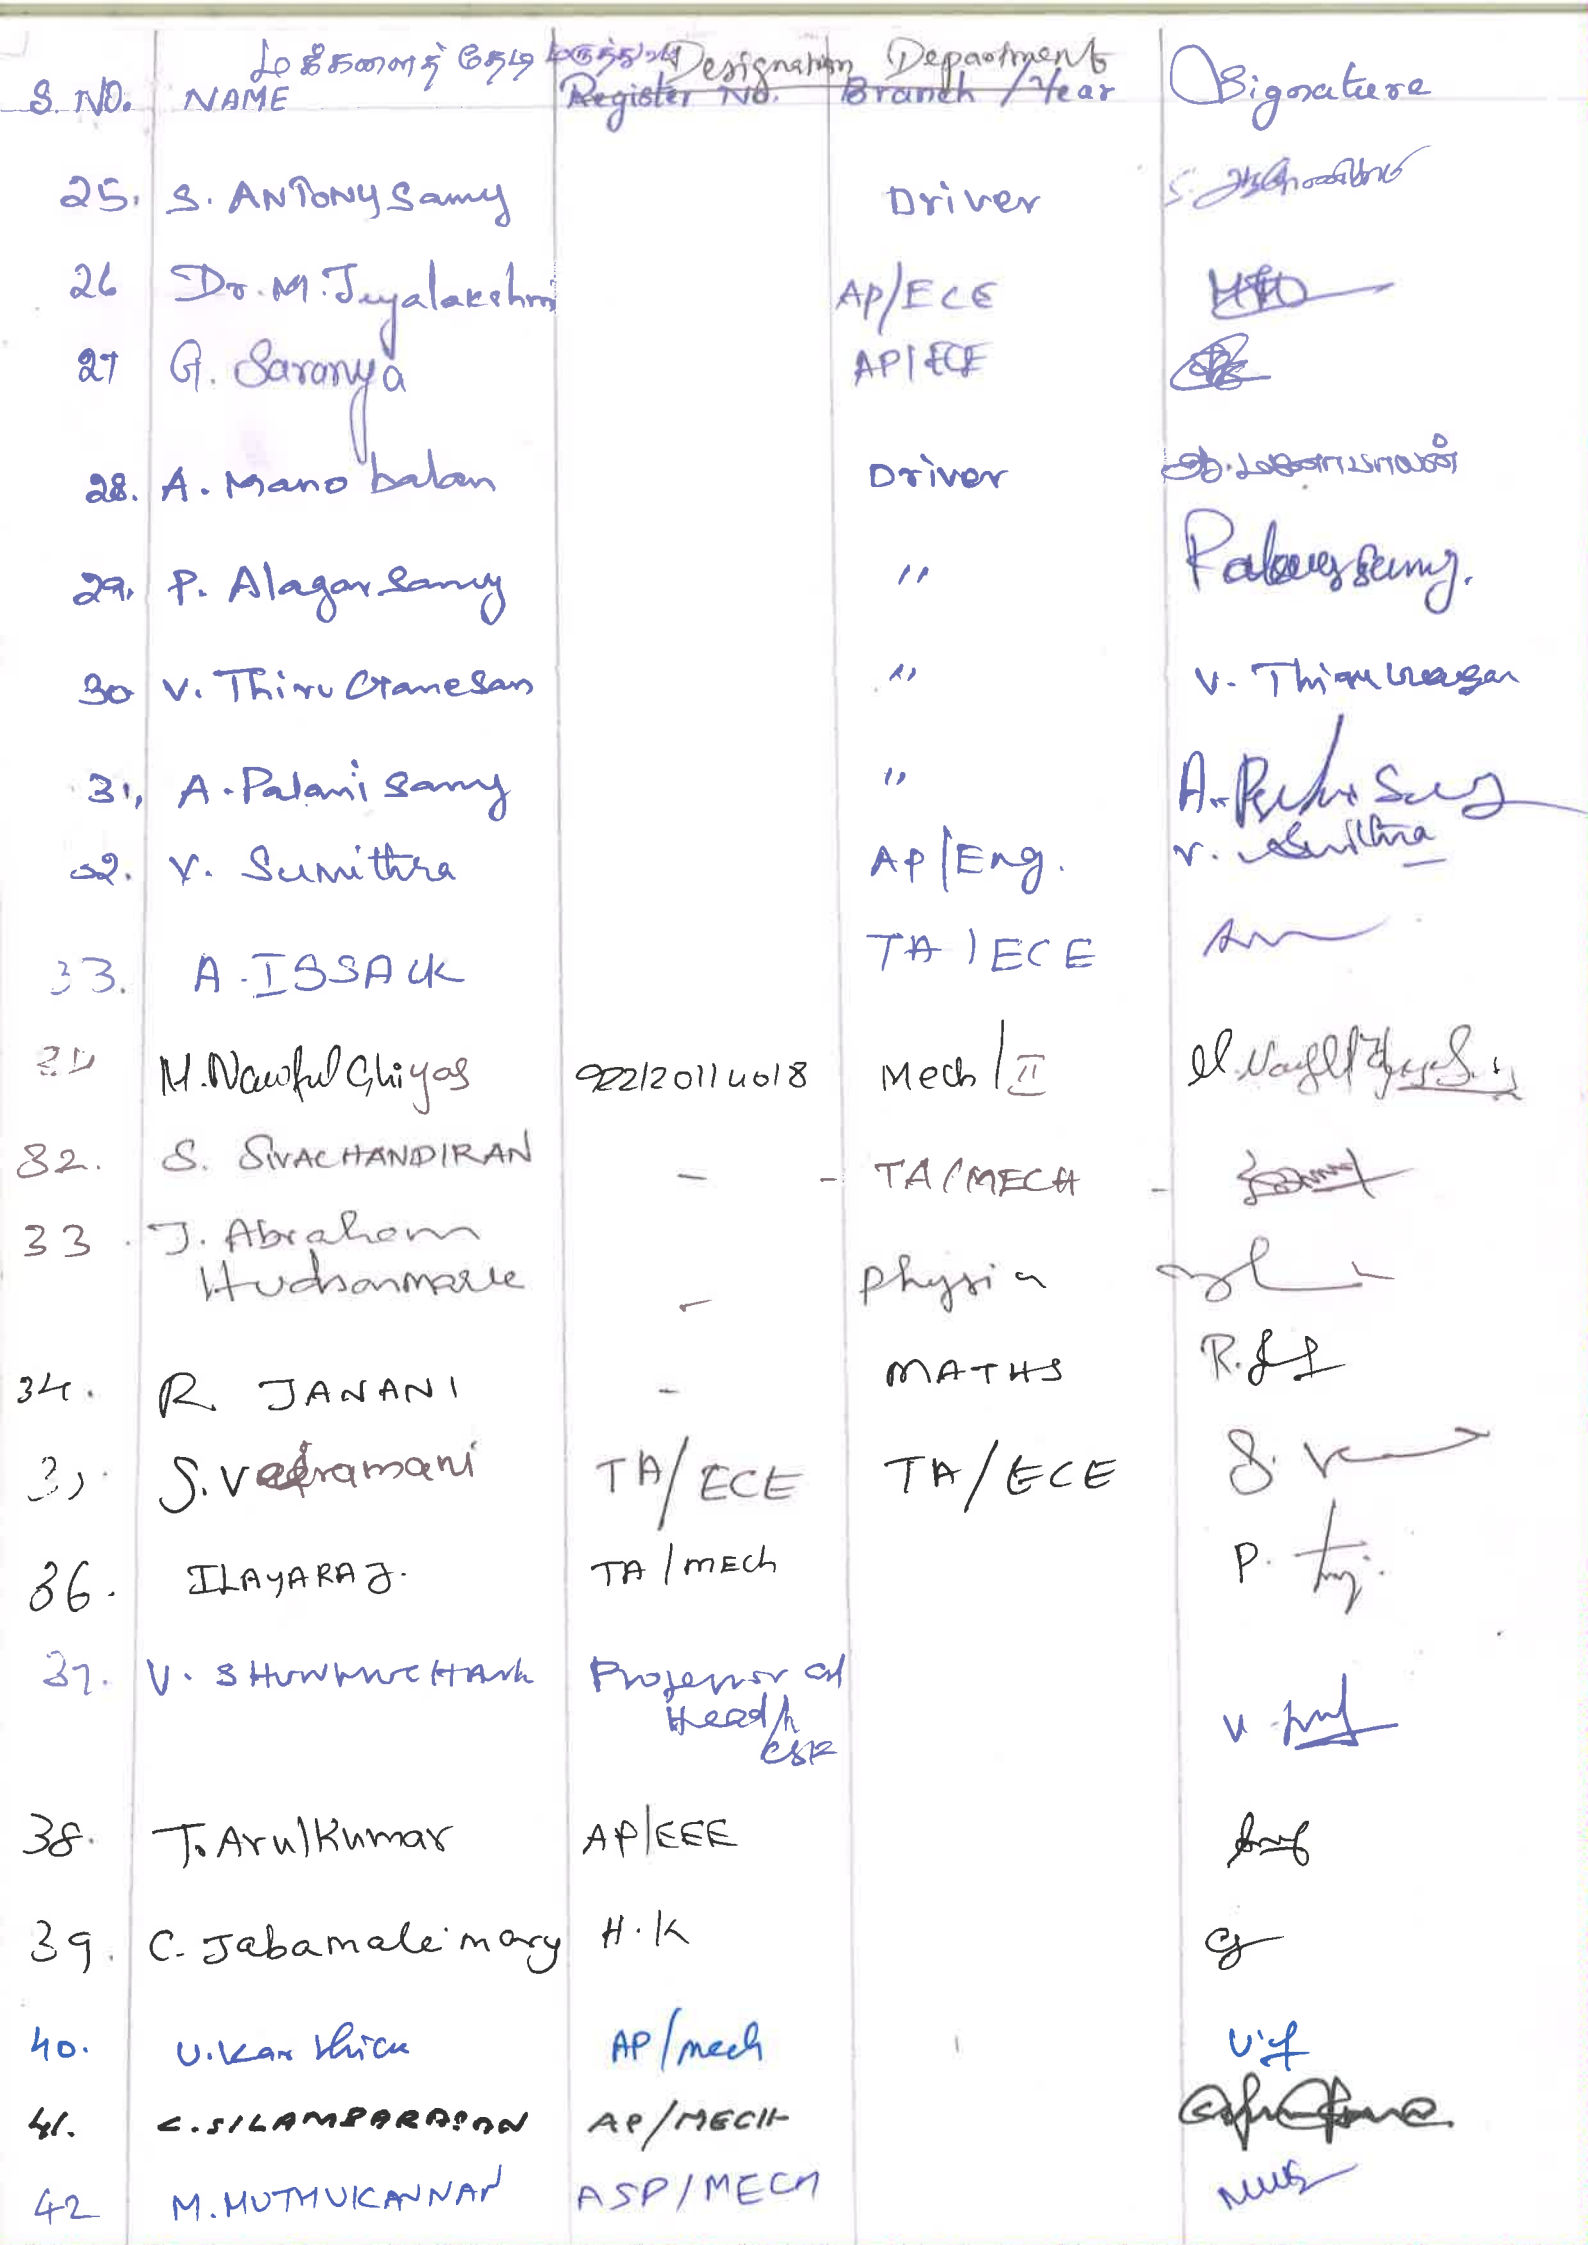 மக்களைத் தேடி மருத்துவம் Designation Department
S. NO. NAME Register No. Branch / Year Signature
25. S. ANTONY Samy Driver
26 Dr. M. Jeyalakshmi AP/ECE
27 G. Saranya AP/ECE
28. A. Mano balan Driver அ. மனோபாலன்
29. P. Alagar Samy "
30 V. Thiru Ganesan " V. Thiru
31, A. Palani Samy "
32. V. Sumithra AP/Eng. V. Sumithra
33. A. ISSACK TA/ECE
M. Nawful Ghiyas 922120114018 Mech/II
32. S. SIVACHANDIRAN - - TA/MECH -
33. J. Abraham
Hudsonmarle - physics
34. R. JANANI - MATHS R.
S. Veeramani TA/ECE TA/ECE S.
36. ILAYARAJ. TA/MECh P.
37. V. Professor and
Head/
CSE V.
38. T. Arulkumar AP/EEE
39. C. Jabamalei mary H.K
40. U. Karthick AP/mech
41. C. SILAMPARASAN AP/MECH
42 M. MUTHUKANNAN ASP/MECH